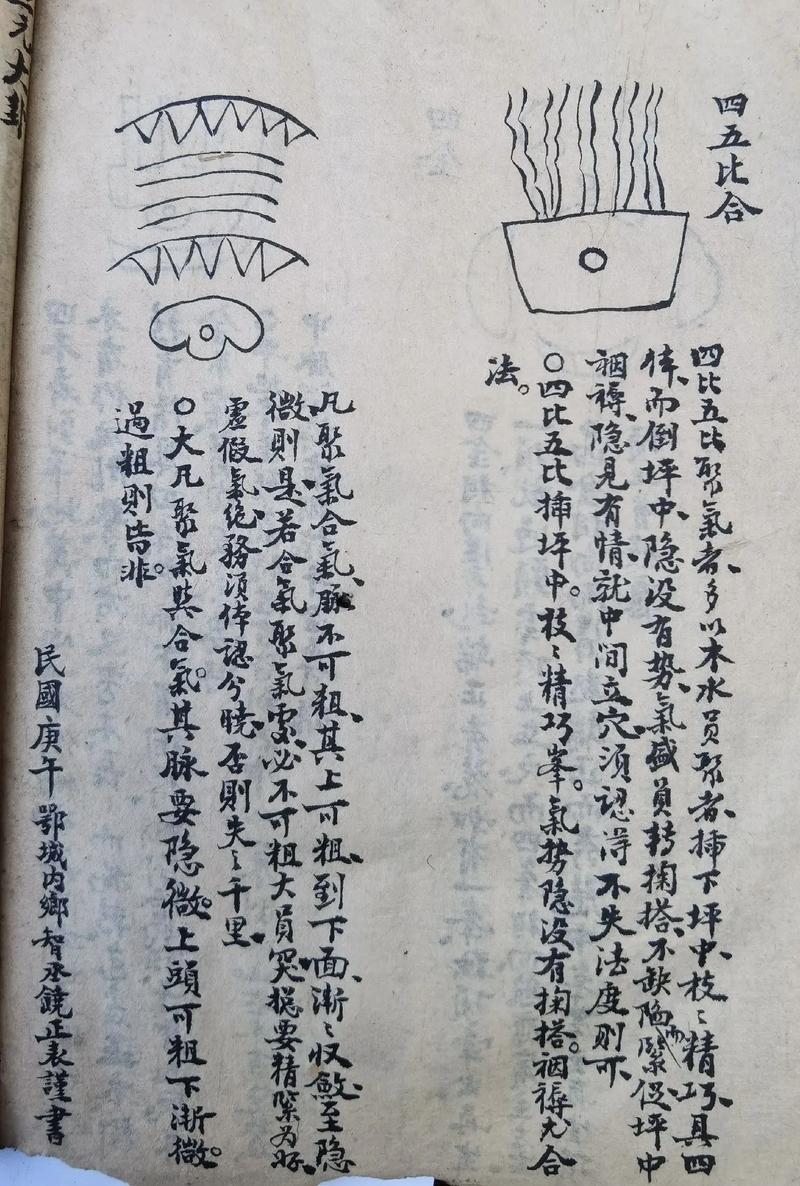 四五比合
四比五比聚氣者、多以木水員聚者、插下坪中、枝〻精巧、具四
体、而倒坪中、隐没有势、氣盛員转掬搭、不缺陷而緊促、坪中
裀褥、隐見有情、就中间立穴、须認淂不失法度則可、
〇四比五比插坪中。枝〻精巧峯。氣势隐没有掬搭。裀褥尤合
法。
凡聚氣合氣、脉不可粗、其上可粗、到下面、漸〻收斂、至隐
微、則是、若合氣聚氣䖏、必不可粗大員突、揔要精緊为好、
虚假氣絶、務须体認分曉、否則失之千里、
〇大凡聚氣與合氣。其脉要隐微。上頭可粗下漸微。
過粗則皆非。
民國庚午鄂城内鄉智丞鐃正表謹書